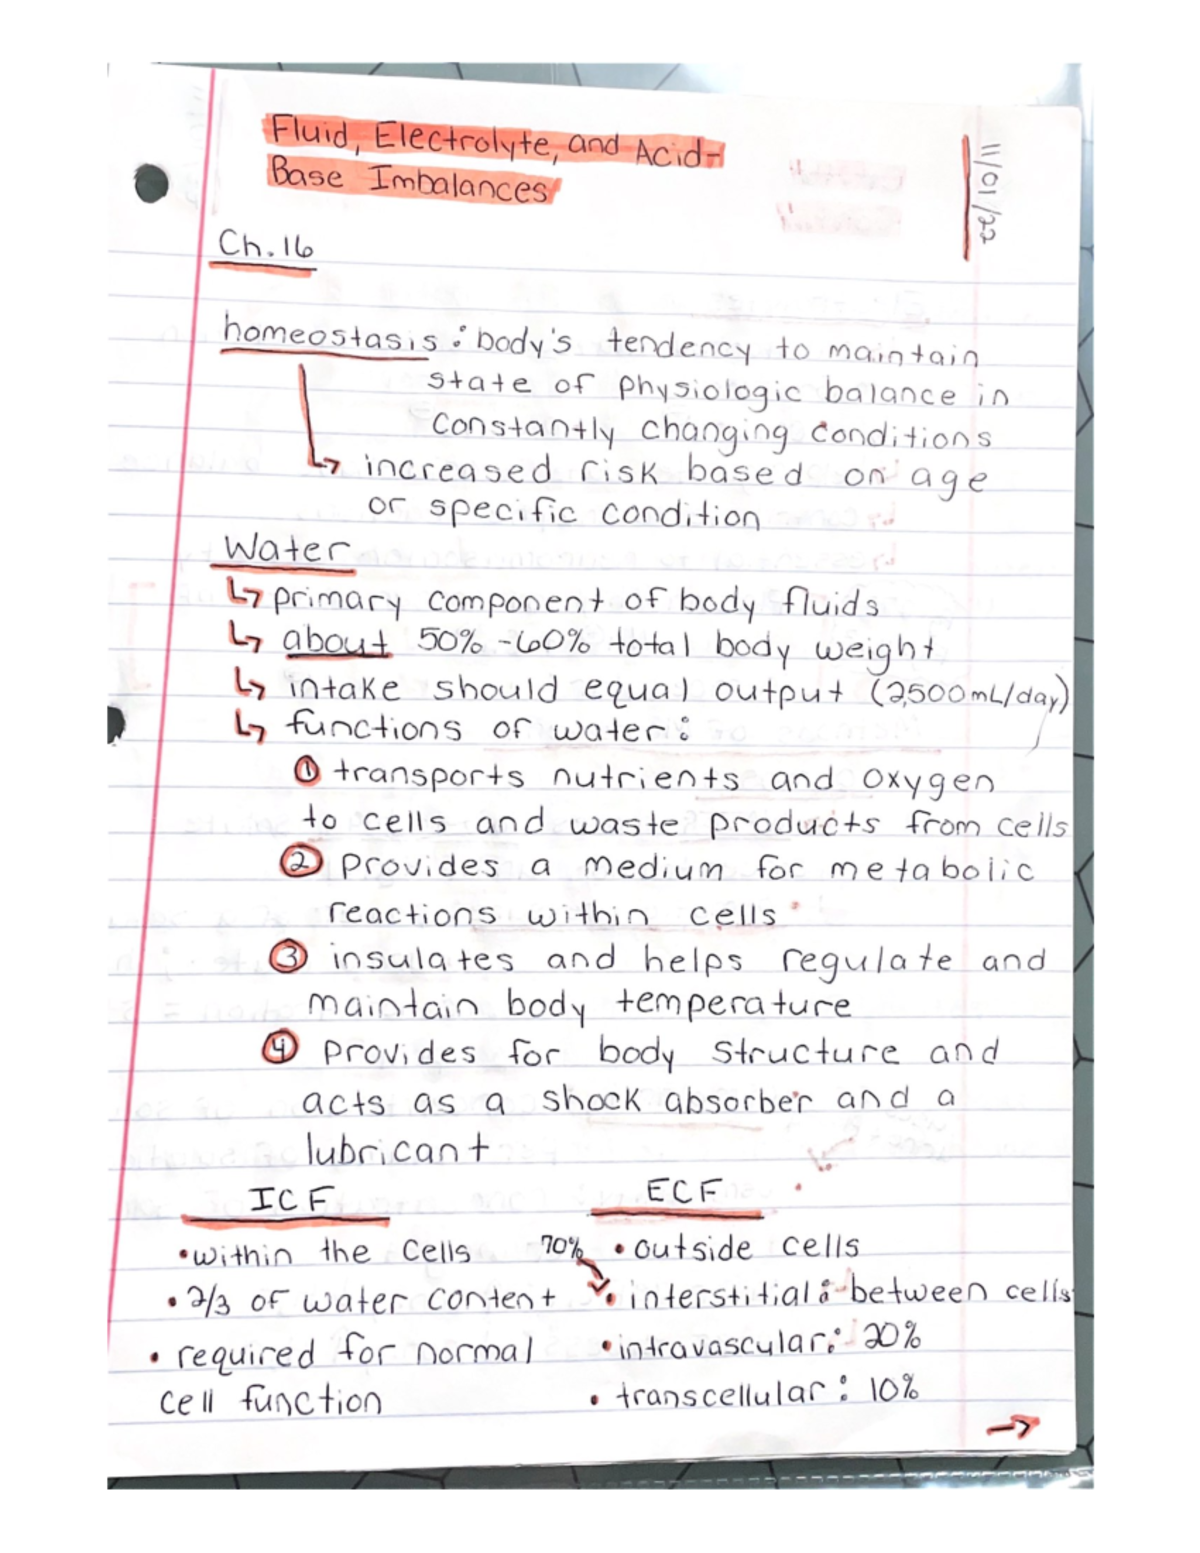 Fluid, Electrolyte, and Acid-
Base Imbalances
11/01/22
Ch. 16
homeostasis: body's tendency to maintain
state of physiologic balance in
constantly changing conditions
↳ increased risk based on age
or specific condition
Water
↳ primary component of body fluids
↳ about 50% - 60% total body weight
↳ intake should equal output (2,500mL/day)
↳ functions of water:
① transports nutrients and oxygen
to cells and waste products from cells
② provides a medium for metabolic
reactions within cells
③ insulates and helps regulate and
maintain body temperature
④ provides for body structure and
acts as a shock absorber and a
lubricant
ICF
• within the cells
• 2/3 of water content
• required for normal
cell function
ECF
• outside cells
70% → • interstitial: between cells
• intravascular: 20%
• transcellular: 10%
→